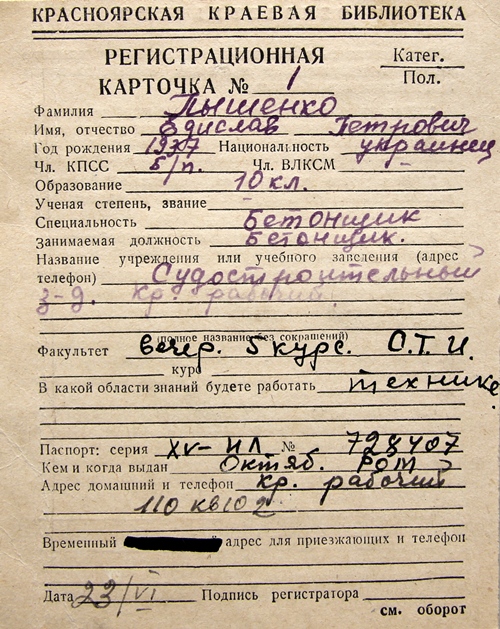 КРАСНОЯРСКАЯ КРАЕВАЯ БИБЛИОТЕКА
РЕГИСТРАЦИОННАЯ Катег.
КАРТОЧКА № 1 Пол.
Фамилия Пышенко
Имя, отчество Едислав Петрович
Год рождения 1937 Национальность украинец
Чл. КПСС б/п. Чл. ВЛКСМ –
Образование 10 кл.
Ученая степень, звание
Специальность Бетонщик
Занимаемая должность Бетонщик.
Название учреждения или учебного заведения (адрес
телефон) Судостроительный
з-д. Кр. рабочий.
(полное название без сокращений)
Факультет вечер. 5 курс. С.Т.И.
курс
В какой области знаний будете работать технике
Паспорт: серия XV-ИЛ № 728407
Кем и когда выдан Октяб. РОМ
Адрес домашний и телефон Кр. рабочий
110 кв 102
Временный адрес для приезжающих и телефон
Дата 23/VI Подпись регистратора
см. оборот